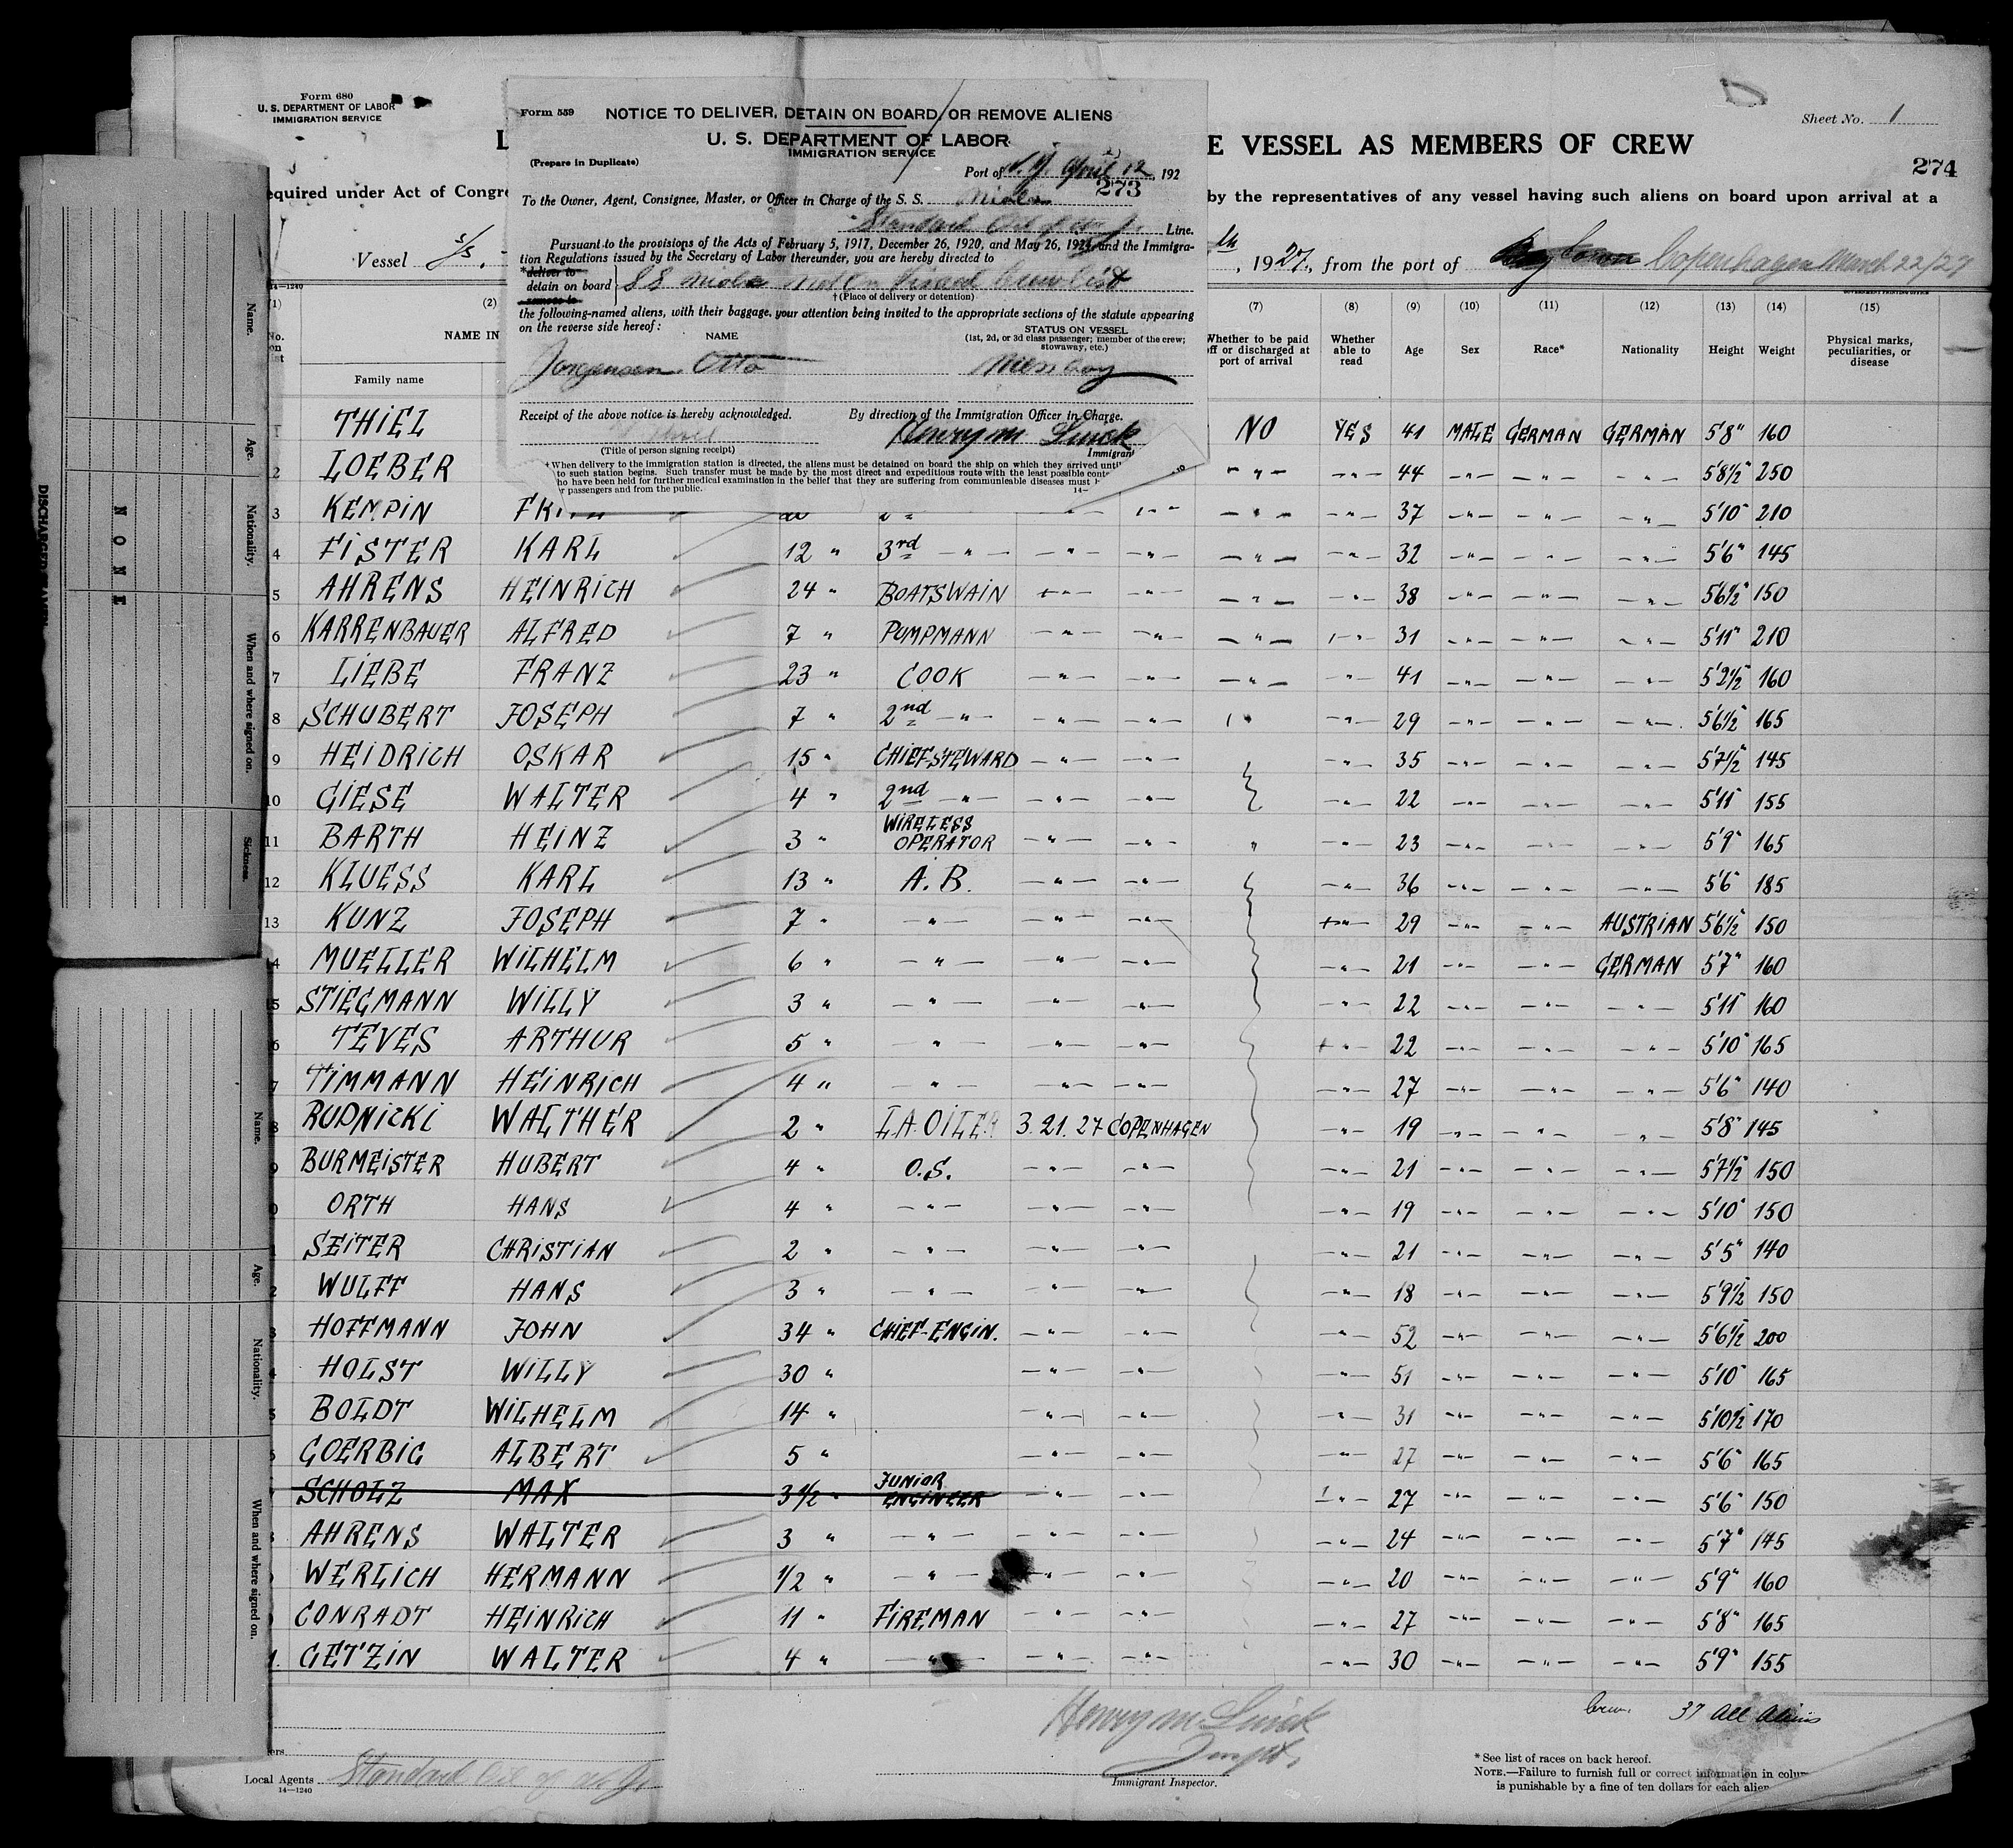 Form 680
U. S. DEPARTMENT OF LABOR
IMMIGRATION SERVICE
Sheet No. 1
E VESSEL AS MEMBERS OF CREW
274
equired under Act of Congre
by the representatives of any vessel having such aliens on board upon arrival at a
Vessel S/S.
, 1927, from the port of Copenhagen March 22/27
Form 559 NOTICE TO DELIVER, DETAIN ON BOARD, OR REMOVE ALIENS
U. S. DEPARTMENT OF LABOR
IMMIGRATION SERVICE
(Prepare in Duplicate)
Port of N.Y. April 12, 192
273
To the Owner, Agent, Consignee, Master, or Officer in Charge of the S. S.
Standard Oil of N. J. Line.
Pursuant to the provisions of the Acts of February 5, 1917, December 26, 1920, and May 26, 1924, and the Immigra-
tion Regulations issued by the Secretary of Labor thereunder, you are hereby directed to
*deliver to
detain on board
remove to
SS not on visaed crew list
† (Place of delivery or detention)
the following-named aliens, with their baggage, your attention being invited to the appropriate sections of the statute appearing
on the reverse side hereof:
NAME
STATUS ON VESSEL
(1st, 2d, or 3d class passenger; member of the crew;
stowaway, etc.)
Jorgensen Otto Messboy
Receipt of the above notice is hereby acknowledged. By direction of the Immigration Officer in Charge.
Henry M
(Title of person signing receipt) Immigrant
† When delivery to the immigration station is directed, the aliens must be detained on board the ship on which they arrived until
to such station begins. Such transfer must be made by the most direct and expeditious route with the least possible cont
ho have been held for further medical examination in the belief that they are suffering from communicable diseases must
r passengers and from the public. 14—
14—1240
GOVERNMENT PRINTING OFFICE
(1) (2) (7) (8) (9) (10) (11) (12) (13) (14) (15)
No.
on
list
NAME IN
Family name
Whether to be paid
off or discharged at
port of arrival
Whether
able to
read
Age Sex Race* Nationality Height Weight
Physical marks,
peculiarities, or
disease
THIEL NO YES 41 MALE GERMAN GERMAN 5'8" 160
2 LOEBER – " – – " – 44 – " – – " – – " – 5'8½" 250
3 KEMPIN – " – – " – 37 – " – – " – – " – 5'10" 210
4 FISTER KARL 12 " 3rd – " – – " – – " – – " – – " – 32 – " – – " – – " – 5'6" 145
5 AHRENS HEINRICH 24 " BOATSWAIN – " – – " – – " – – " – 38 – " – – " – – " – 5'6½" 150
6 KARRENBAUER ALFRED 7 " PUMPMANN – " – – " – – " – – " – 31 – " – – " – – " – 5'11" 210
7 LIEBE FRANZ 23 " COOK – " – – " – – " – – " – 41 – " – – " – – " – 5'2½" 160
8 SCHUBERT JOSEPH 7 " 2nd – " – – " – – " – – " – 29 – " – – " – – " – 5'6½" 165
9 HEIDRICH OSKAR 15 " CHIEF-STEWARD – " – – " – – " – 35 – " – – " – – " – 5'7½" 145
10 GIESE WALTER 4 " 2nd – " – – " – – " – – " – 22 – " – – " – – " – 5'11" 155
11 BARTH HEINZ 3 " WIRELESS OPERATOR – " – – " – " – " – 23 – " – – " – – " – 5'9" 165
12 KLUESS KARL 13 " A.B. – " – – " – – " – 36 – " – – " – – " – 5'6" 185
13 KUNZ JOSEPH 7 " – " – – " – – " – – " – 29 – " – – " – AUSTRIAN 5'6½" 150
14 MUELLER WILHELM 6 " – " – – " – – " – – " – 21 – " – – " – GERMAN 5'7" 160
15 STIEGMANN WILLY 3 " – " – – " – – " – – " – 22 – " – – " – – " – 5'11" 160
6 TEVES ARTHUR 5 " – " – – " – – " – – " – 22 – " – – " – – " – 5'10" 165
7 TIMMANN HEINRICH 4 " – " – – " – – " – – " – 27 – " – – " – – " – 5'6" 140
8 RUDNICKI WALTHER 2 " OILER 3. 21. 27 COPENHAGEN – " – 19 – " – – " – – " – 5'8" 145
9 BURMEISTER HUBERT 4 " O.S. – " – – " – – " – 21 – " – – " – – " – 5'7½" 150
0 ORTH HANS 4 " – " – – " – – " – – " – 19 – " – – " – – " – 5'10" 150
1 SEITER CHRISTIAN 2 " – " – – " – – " – – " – 21 – " – – " – – " – 5'5" 140
2 WULFF HANS 3 " – " – – " – – " – – " – 18 – " – – " – – " – 5'9½" 150
3 HOFFMANN JOHN 34 " CHIEF-ENGIN. – " – – " – – " – 52 – " – – " – – " – 5'6½" 200
4 HOLST WILLY 30 " – " – – " – – " – 51 – " – – " – – " – 5'10" 165
5 BOLDT WILHELM 14 " – " – – " – – " – 31 – " – – " – – " – 5'10½" 170
6 GOERBIG ALBERT 5 " – " – – " – – " – 27 – " – – " – – " – 5'6" 165
SCHOLZ MAX 3½ " JUNIOR ENGINEER – " – – " – – " – 27 – " – – " – – " – 5'6" 150
AHRENS WALTER 3 " – " – – " – – " – – " – 24 – " – – " – – " – 5'7" 145
WERLICH HERMANN ½ " – " – – " – – " – – " – 20 – " – – " – – " – 5'9" 160
CONRADT HEINRICH 11 " FIREMAN – " – – " – – " – 27 – " – – " – – " – 5'8" 165
GETZIN WALTER 4 " – " – – " – – " – – " – 30 – " – – " – – " – 5'9" 155
Crew 37 All Aliens
Henry M.
Inspt.
Immigrant Inspector.
ers
Local Agents Standard Oil of N. J.
14—1240
* See list of races on back hereof.
NOTE.—Failure to furnish full or correct information in colum
is punishable by a fine of ten dollars for each alien
Name.
Age.
Nationality.
When and where signed on.
Sickness.
NONE
Name.
Age.
Nationality.
When and where signed on.